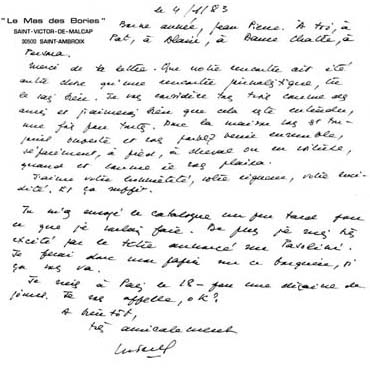 le 4/1/83
"Le Mas des Bories"
SAINT-VICTOR-DE-MALCAP
30500 SAINT-AMBROIX
Bonne année, Jean Pierre. A toi, à
Pat, à Blaise, à Dame Chatte, à
Merci de ta lettre. Que notre rencontre ait été
autre chose qu'une rencontre journalistique, tu
le sais bien. Je vous considère tous trois comme des
amis et j'aimerais bien que cela soit entendu,
une fois pour toutes. Donc la maison vous est tou-
jours ouverte et vous pouvez venir ensemble,
séparément, à pied, à cheval ou en voiture,
quand et comme il vous plaira.
J'aime votre honnêteté, votre rigueur, votre luci-
dité. Et ça suffit.
Tu m'as envoyé le catalogue un peu tard pour
ce que je voulais faire. De plus je suis très
excité par le titre annoncé sur Pasolini. Je
ferai donc mon papier sur ce bouquin, si
ça vous va.
Je suis à Paris le 18 - pour une dizaine de
jours. Je vous appelle, O.K?
A bientôt,
très amicalement